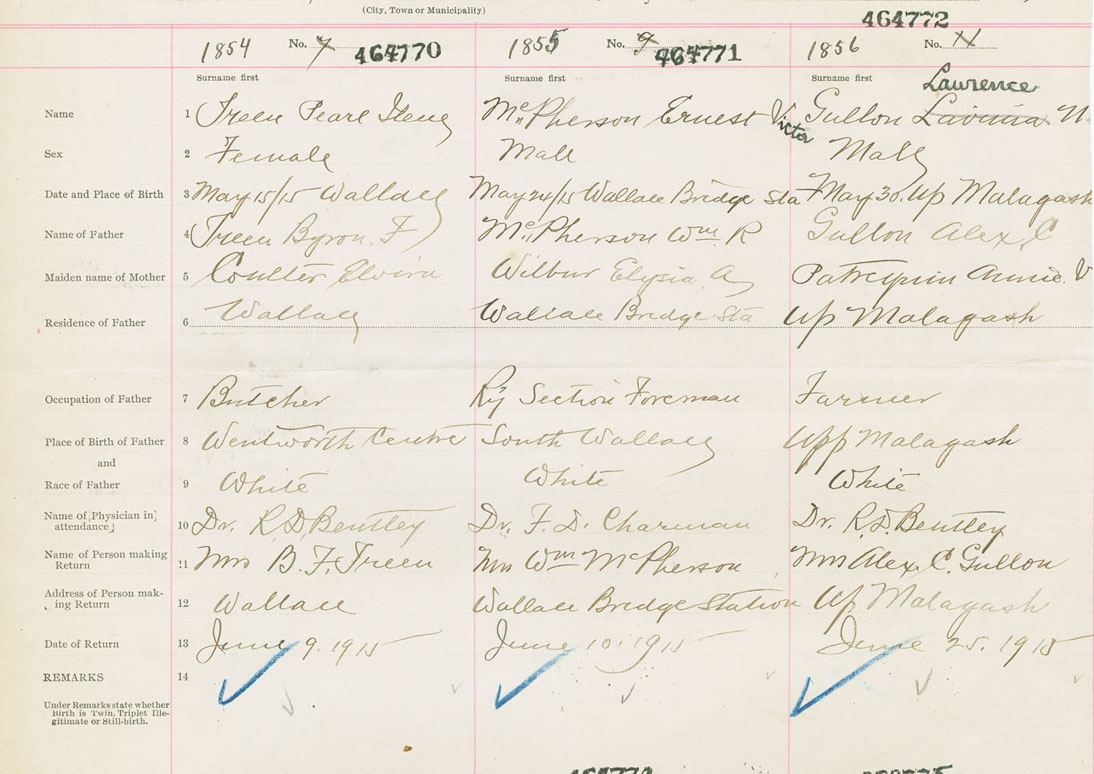 (City, Town or Municipality)
464772
1854 No. 7 464770 1855 No. 9 464771 1856 No. 11
Surname first Surname first Surname first
Lawrence
Name 1 Treen Pearl Ilene McPherson Ernest Victor Gullon Lavinia
Sex 2 Female Male Male
Date and Place of Birth 3 May 15/15 Wallace May 24/15 Wallace Bridge Sta May 30. Up Malagash
Name of Father 4 Treen Byron. F McPherson Wm R Gullon Alex. C
Maiden name of Mother 5 Coulter Elvira Wilbur Elysia A Patrequin Annie. V
Residence of Father 6 Wallace Wallace Bridge Sta Up Malagash
Occupation of Father 7 Butcher Ry Section Foreman Farmer
Place of Birth of Father 8 Wentworth Centre South Wallace Upp Malagash
and
Race of Father 9 White White White
Name of [Physician in]
attendance] 10 Dr. R. D. Bentley Dr. F. D. Charman Dr. R. D. Bentley
Name of Person making
Return 11 Mrs B. F. Treen Mrs Wm McPherson Mrs Alex. C. Gullon
Address of Person mak-
ing Return 12 Wallace Wallace Bridge Station Up Malagash
Date of Return 13 June 9. 1915 June 10. 1915 June 25. 1915
REMARKS 14
Under Remarks state whether
Birth is Twin, Triplet Ille-
gitimate or Still-birth.